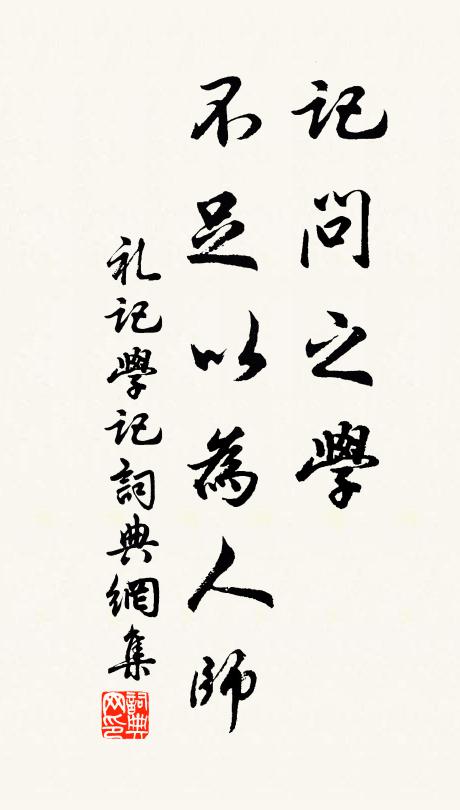 記問之學
不足以為人師
礼記學記詞典網集
詞典网印